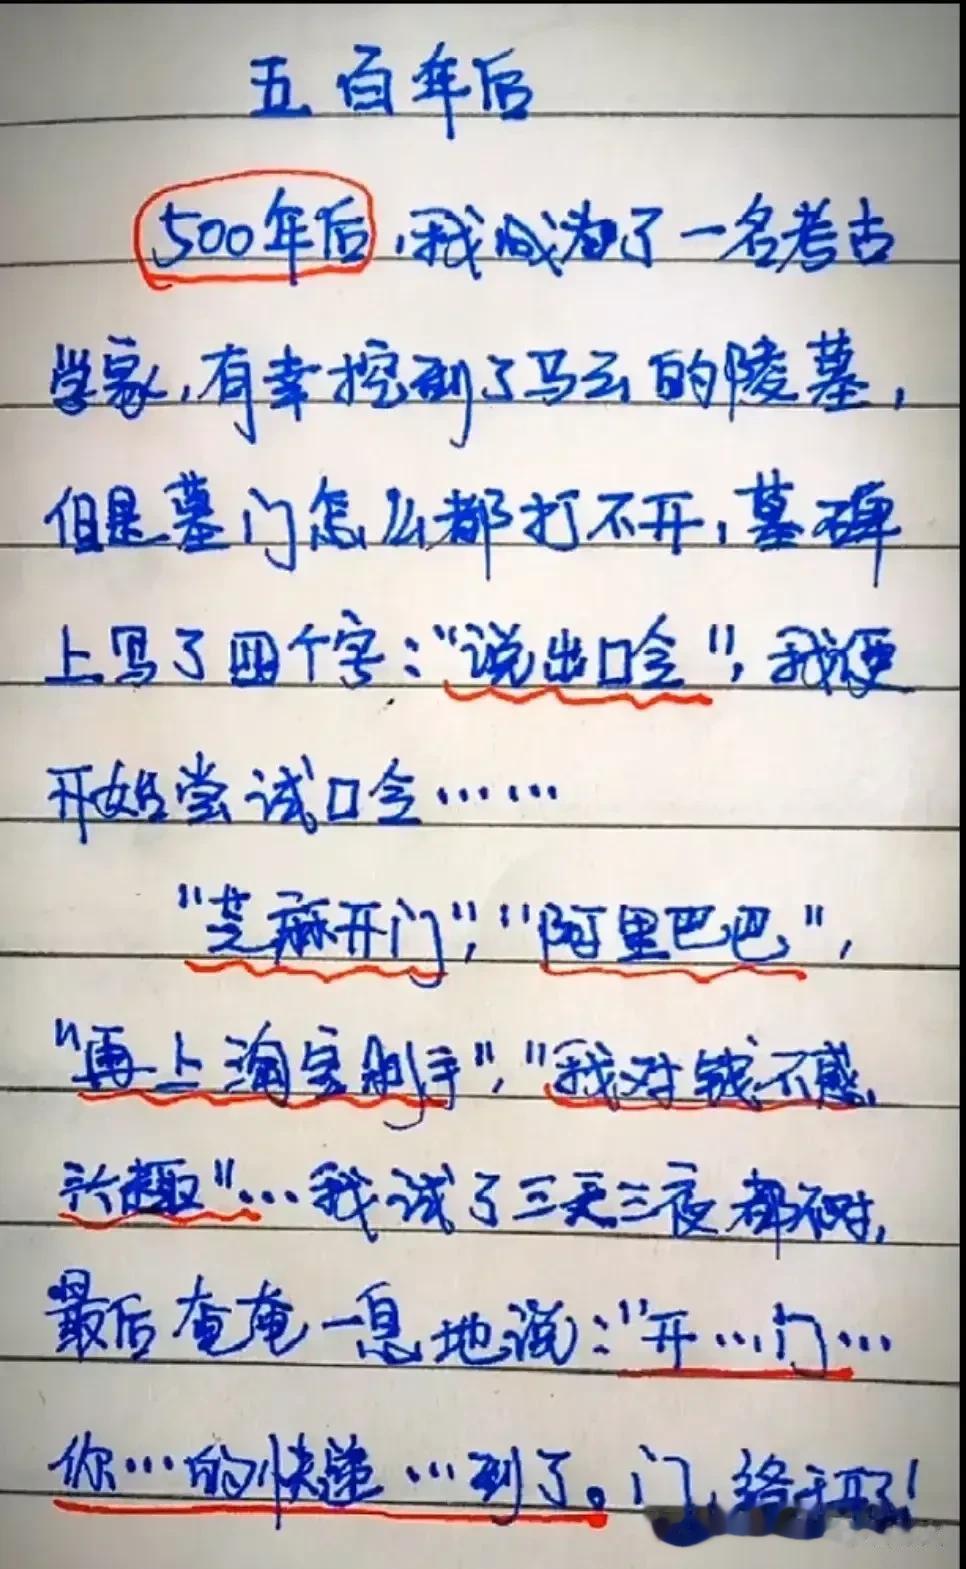 五百年后
500年后,我成为了一名考古
学家,有幸挖到了马云的陵墓,
但是墓门怎么都打不开,墓碑
上写了四个字:“说出口令”,我便
开始尝试口令……
“芝麻开门”,“阿里巴巴”,
“再上淘宝剁手”,“我对钱不感
兴趣”…我试了三天三夜都不对,
最后奄奄一息地说:“开…门…
你…的快递…到了。门,终于开了!